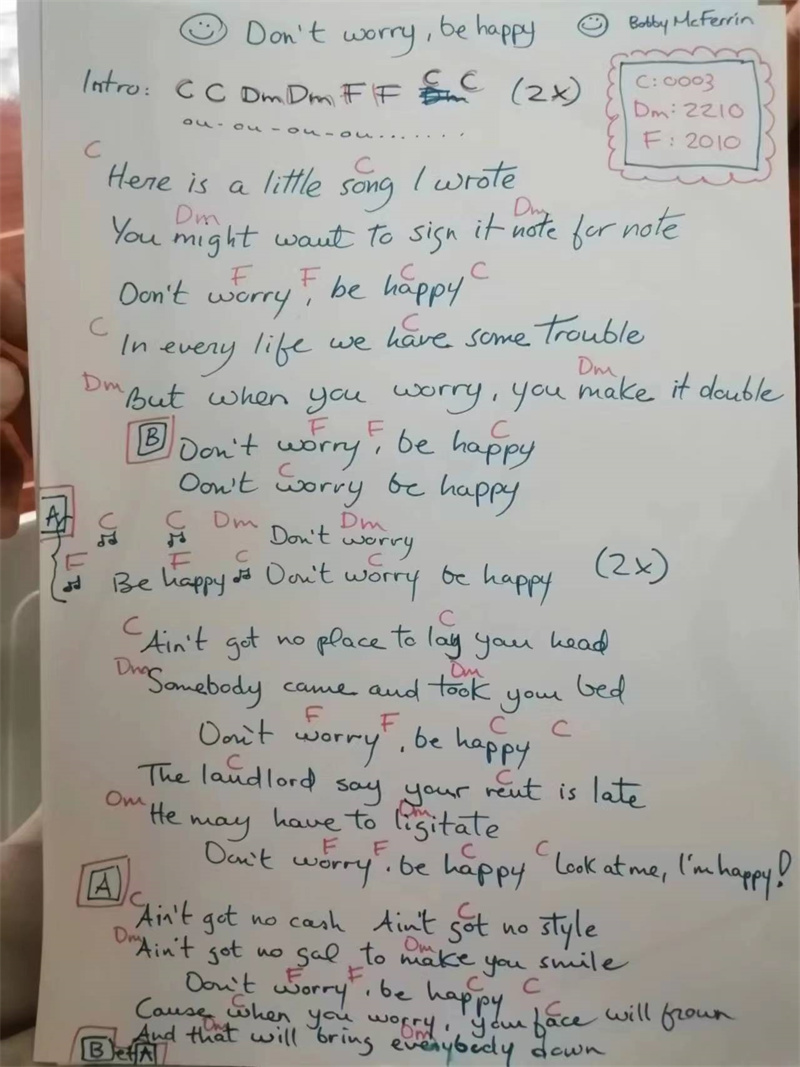 Don't worry, be happy Bobby McFerrin
Intro: C C Dm Dm F F C C (2x)
ou-ou-ou-ou.......
C:0003
Dm:2210
F:2010
C C
Here is a little song I wrote
Dm Dm
You might want to sign it note for note
F F C C
Don't worry, be happy
C C
In every life we have some trouble
Dm Dm
But when you worry, you make it double
F F C
B Don't worry, be happy
C
Don't worry be happy
A C C Dm Dm
Don't worry
F F C C
Be happy Don't worry be happy (2x)
C C
Ain't got no place to lay your head
Dm Dm
Somebody came and took your bed
F F C C
Don't worry, be happy
C C
The landlord say your rent is late
Dm Dm
He may have to ligitate
F F C C
Don't worry, be happy Look at me, I'm happy!
A
C C
Ain't got no cash Ain't got no style
Dm Dm
Ain't got no gal to make you smile
F F C C
Don't worry, be happy
C C
Cause when you worry, your face will frown
Dm Dm
And that will bring everybody down
B et A